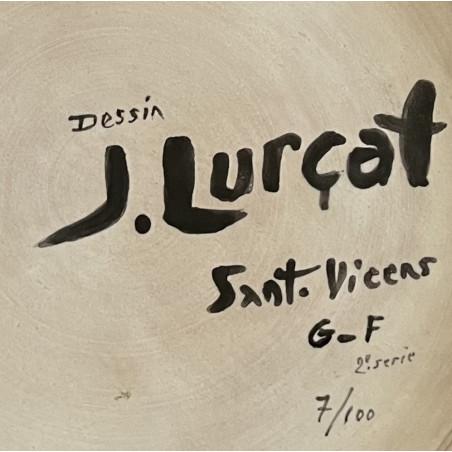 Dessin
J. Lurçat
Sant. Vicens
G-F
2e. serie
7/100